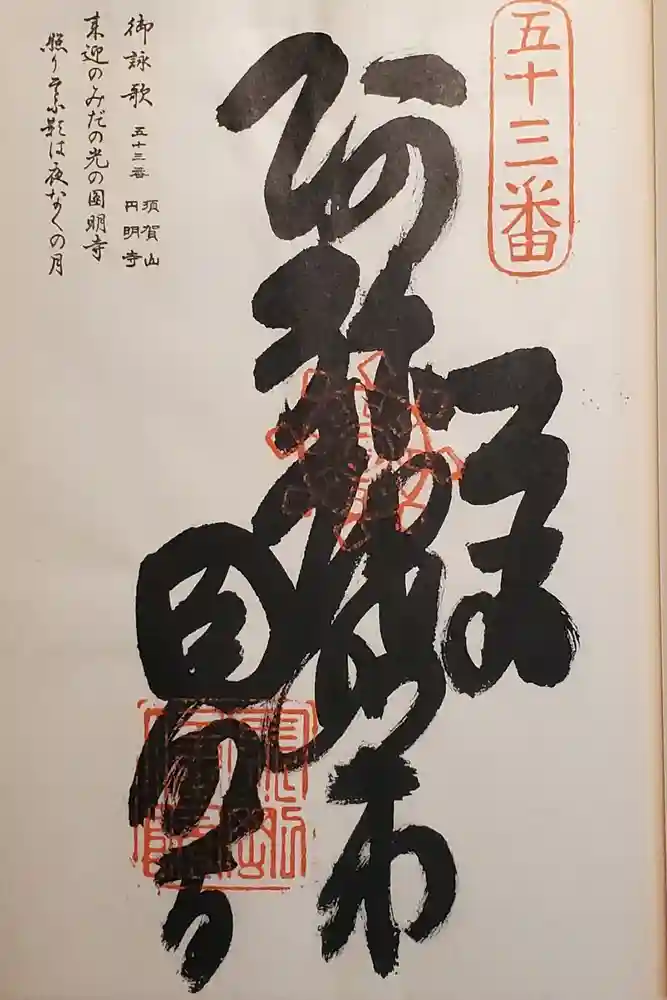 五十三番
阿弥陀如来
圓明寺
御詠歌 五十三番 須賀山 円明寺
来迎のみだの光の圓明寺
照りそふ影は夜な〱の月